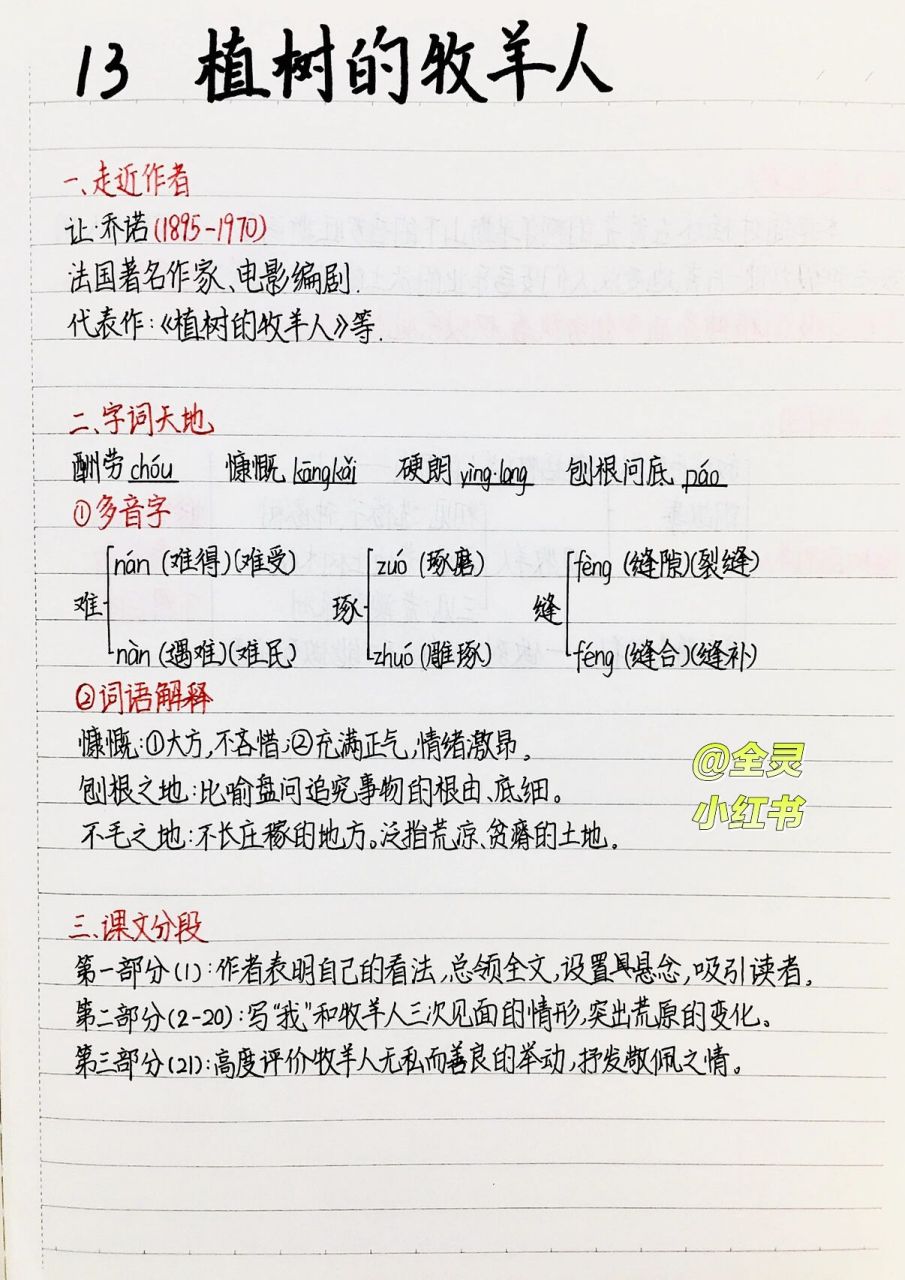 13 植树的牧羊人
一、走近作者
让·乔诺(1895-1970)
法国著名作家、电影编剧.
代表作:《植树的牧羊人》等.
二、字词天地
酬劳 chóu 慷慨 kāngkǎi 硬朗 yìng lang 刨根问底 páo
①多音字
难 nán (难得)(难受) nàn (遇难)(难民)
琢 zuó (琢磨) zhuó (雕琢)
缝 fèng (缝隙)(裂缝) féng (缝合)(缝补)
②词语解释
慷慨:①大方,不吝惜;②充满正气,情绪激昂。
刨根之地:比喻盘问追究事物的根由、底细。
不毛之地:不长庄稼的地方。泛指荒凉、贫瘠的土地。
三、课文分段
第一部分(1):作者表明自己的看法,总领全文,设置悬念,吸引读者。
第二部分(2-20):写“我”和牧羊人三次见面的情形,突出荒原的变化。
第三部分(21):高度评价牧羊人无私而善良的举动,抒发敬佩之情。
@全灵
小红书